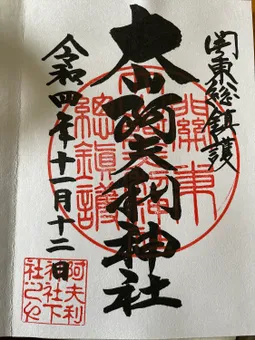 関東総鎮護
大山阿夫利神社
令和四年十一月十二日
關東
總鎮護
阿夫利
神社下
社之印